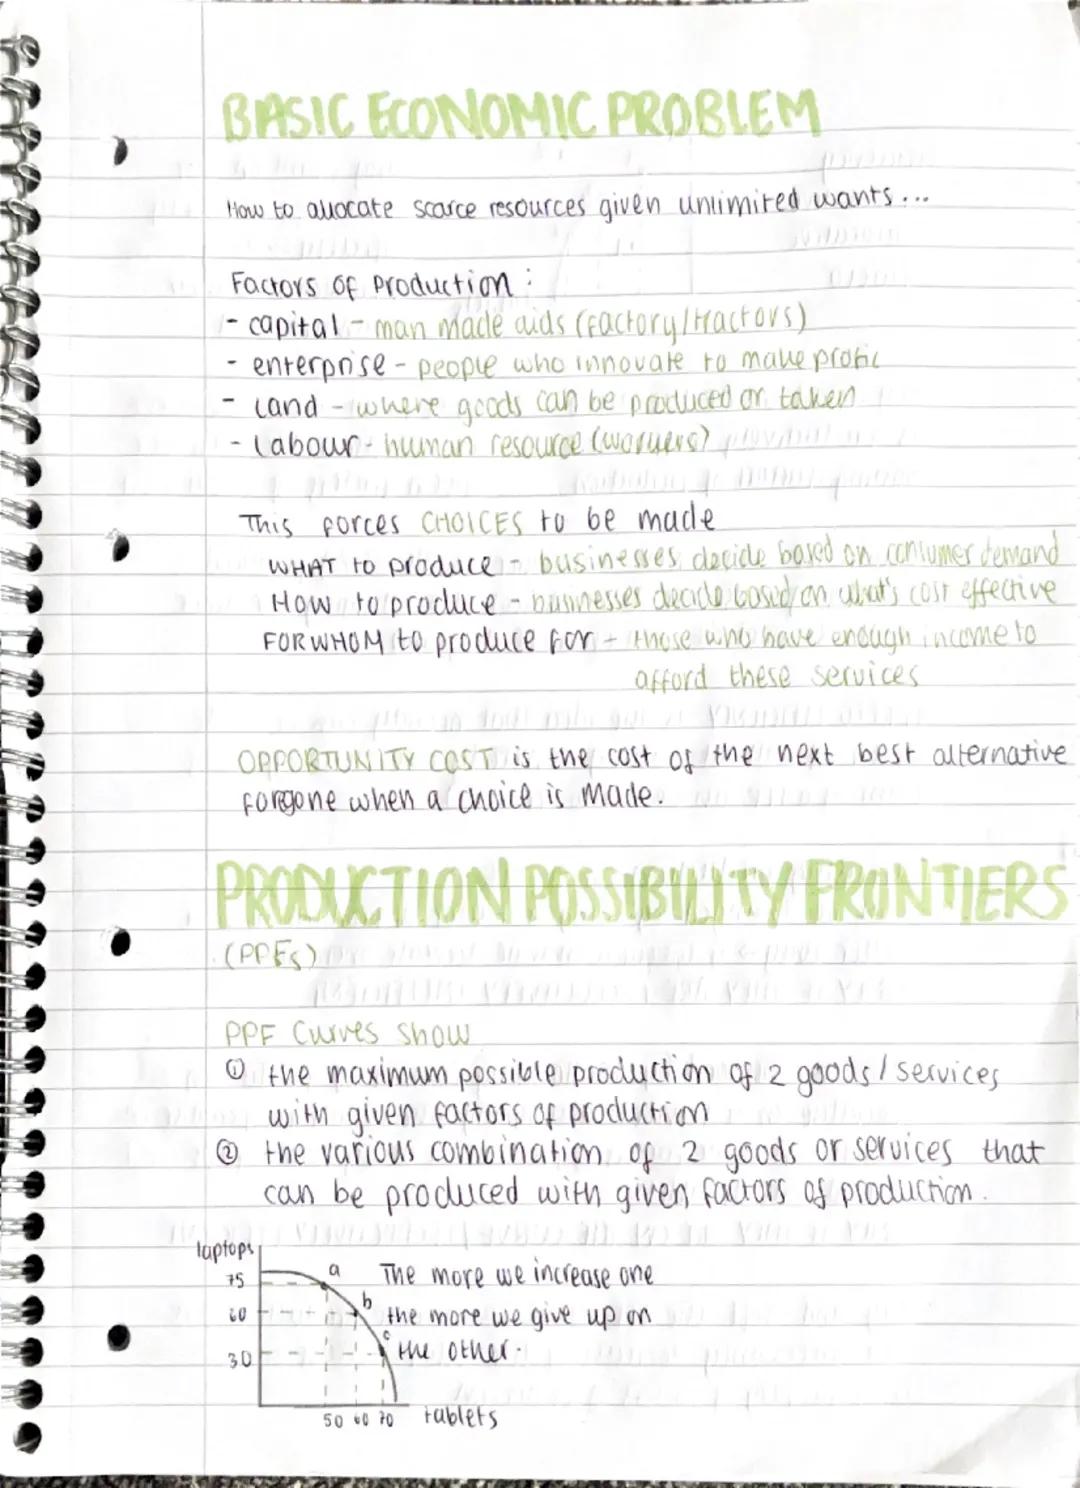 BASIC ECONOMIC PROBLEM
How to allocate scarce resources given unlimited wants...
Factors of production:
- capital - man made aids (factory/tractors)
- enterprise - people who innovate to make profit
- Land - where goods can be produced or taken
- Labour - human resource (workers)
This forces CHOICES to be made
WHAT to produce - businesses decide based on consumer demand
How to produce - businesses decide based on what's cost effective
FOR WHOM to produce for - those who have enough income to
afford these services
OPPORTUNITY COST is the cost of the next best alternative
forgone when a choice is made.
PRODUCTION POSSIBILITY FRONTIERS
(PPFs)
PPF Curves show
① the maximum possible production of 2 goods / services
with given factors of production
② the various combination of 2 goods or services that
can be produced with given factors of production.
laptops
75 a The more we increase one
60 b the more we give up on
30 c the other.
50 60 70 tablets